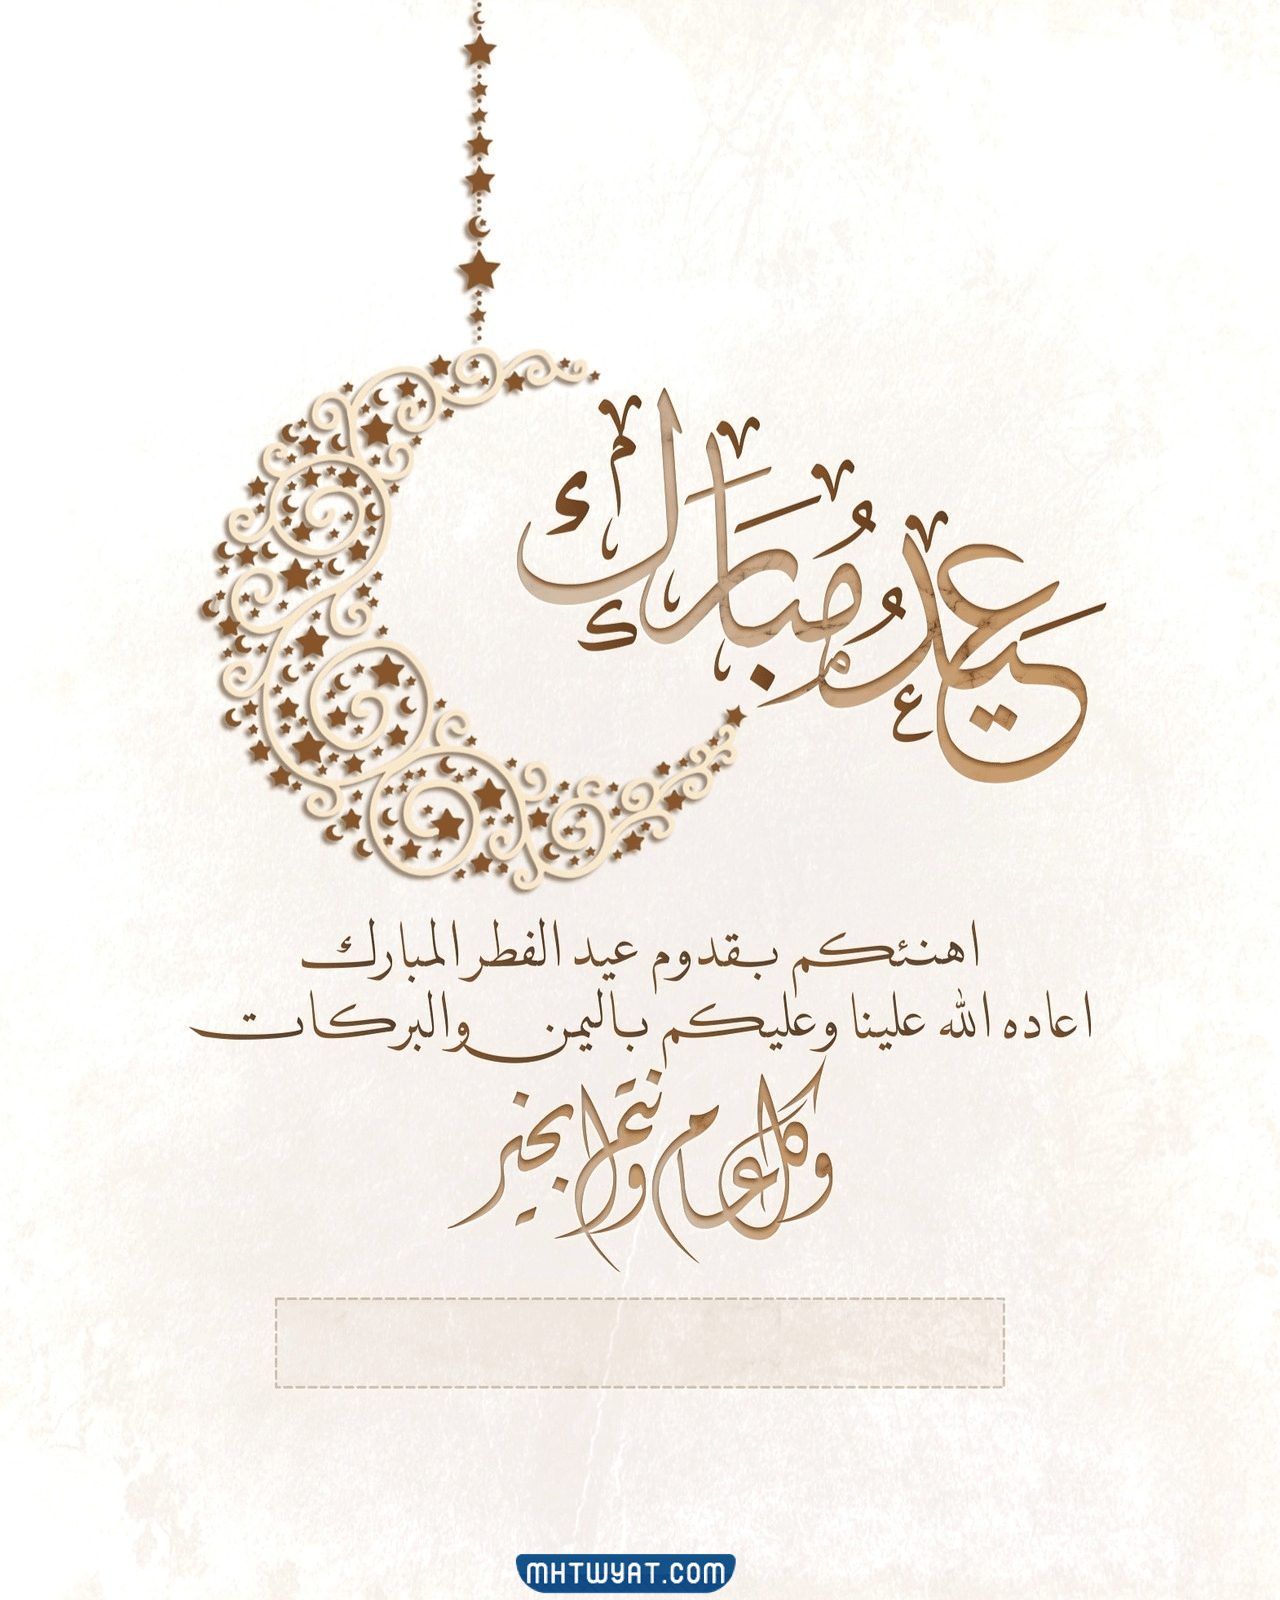 عيد مبارك
اهنئكم بقدوم عيد الفطر المبارك
اعاده الله علينا وعليكم باليمن والبركات
وكل عام وانتم بخير
MHTWYAT.COM